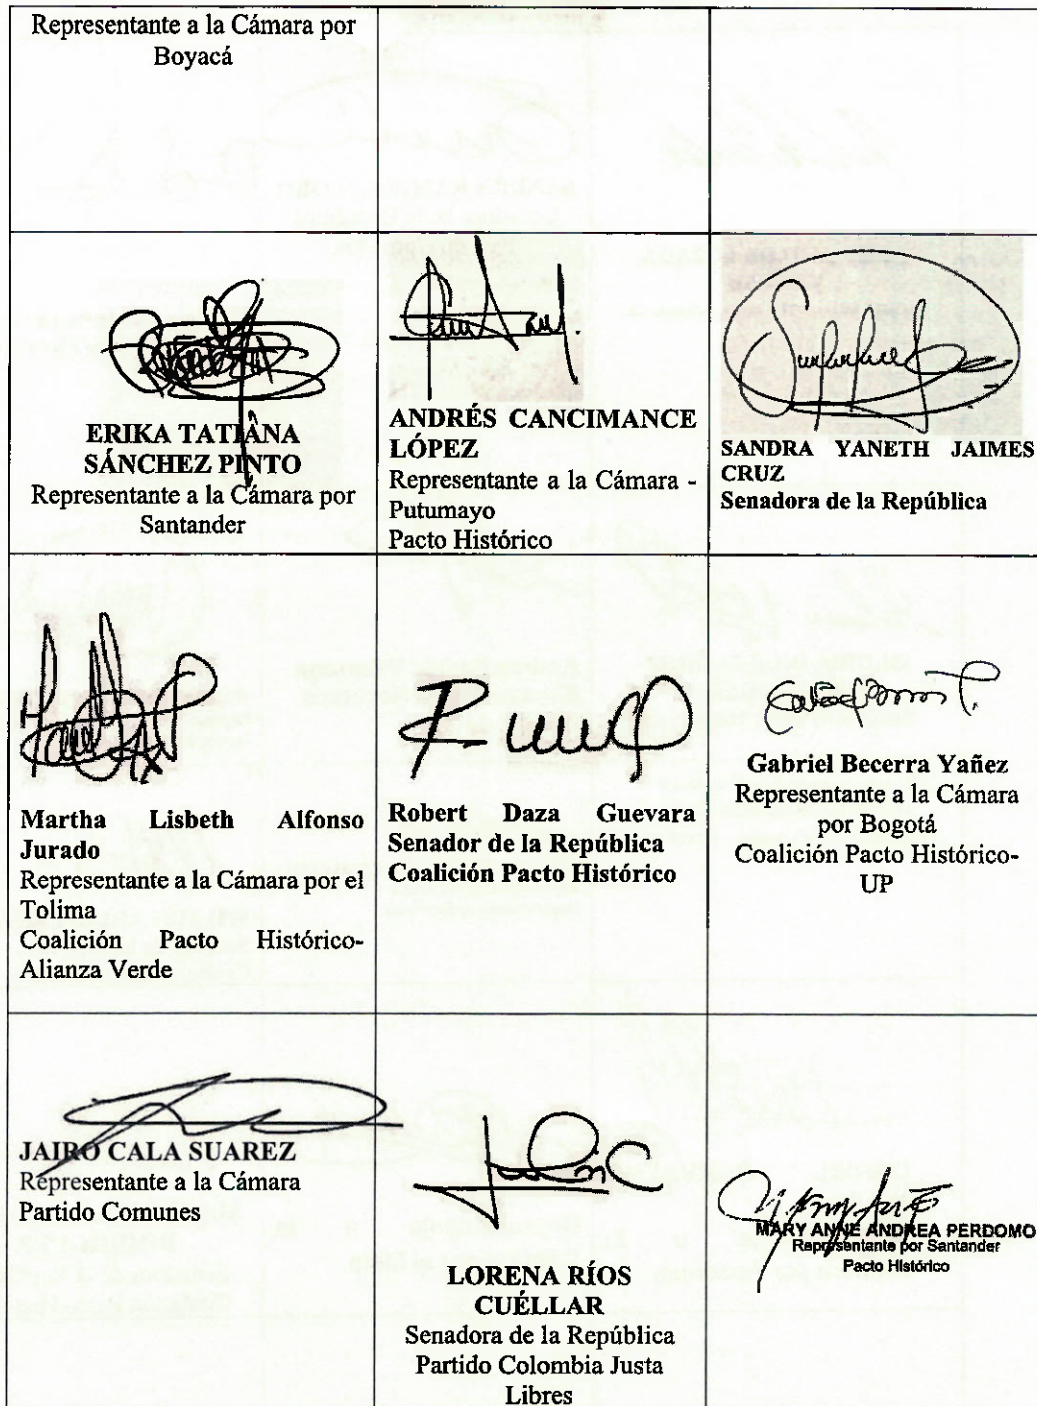 Representante a la Cámara por
Boyacá
ERIKA TATIANA
SÁNCHEZ PINTO
Representante a la Cámara por
Santander
ANDRÉS CANCIMANCE
LÓPEZ
Representante a la Cámara -
Putumayo
Pacto Histórico
SANDRA YANETH JAIMES
CRUZ
Senadora de la República
Martha Lisbeth Alfonso
Jurado
Representante a la Cámara por el
Tolima
Coalición Pacto Histórico-
Alianza Verde
Robert Daza Guevara
Senador de la República
Coalición Pacto Histórico
Gabriel Becerra Yañez
Representante a la Cámara
por Bogotá
Coalición Pacto Histórico-
UP
JAIRO CALA SUAREZ
Representante a la Cámara
Partido Comunes
LORENA RÍOS
CUÉLLAR
Senadora de la República
Partido Colombia Justa
Libres
MARY ANNE ANDREA PERDOMO
Representante por Santander
Pacto Histórico